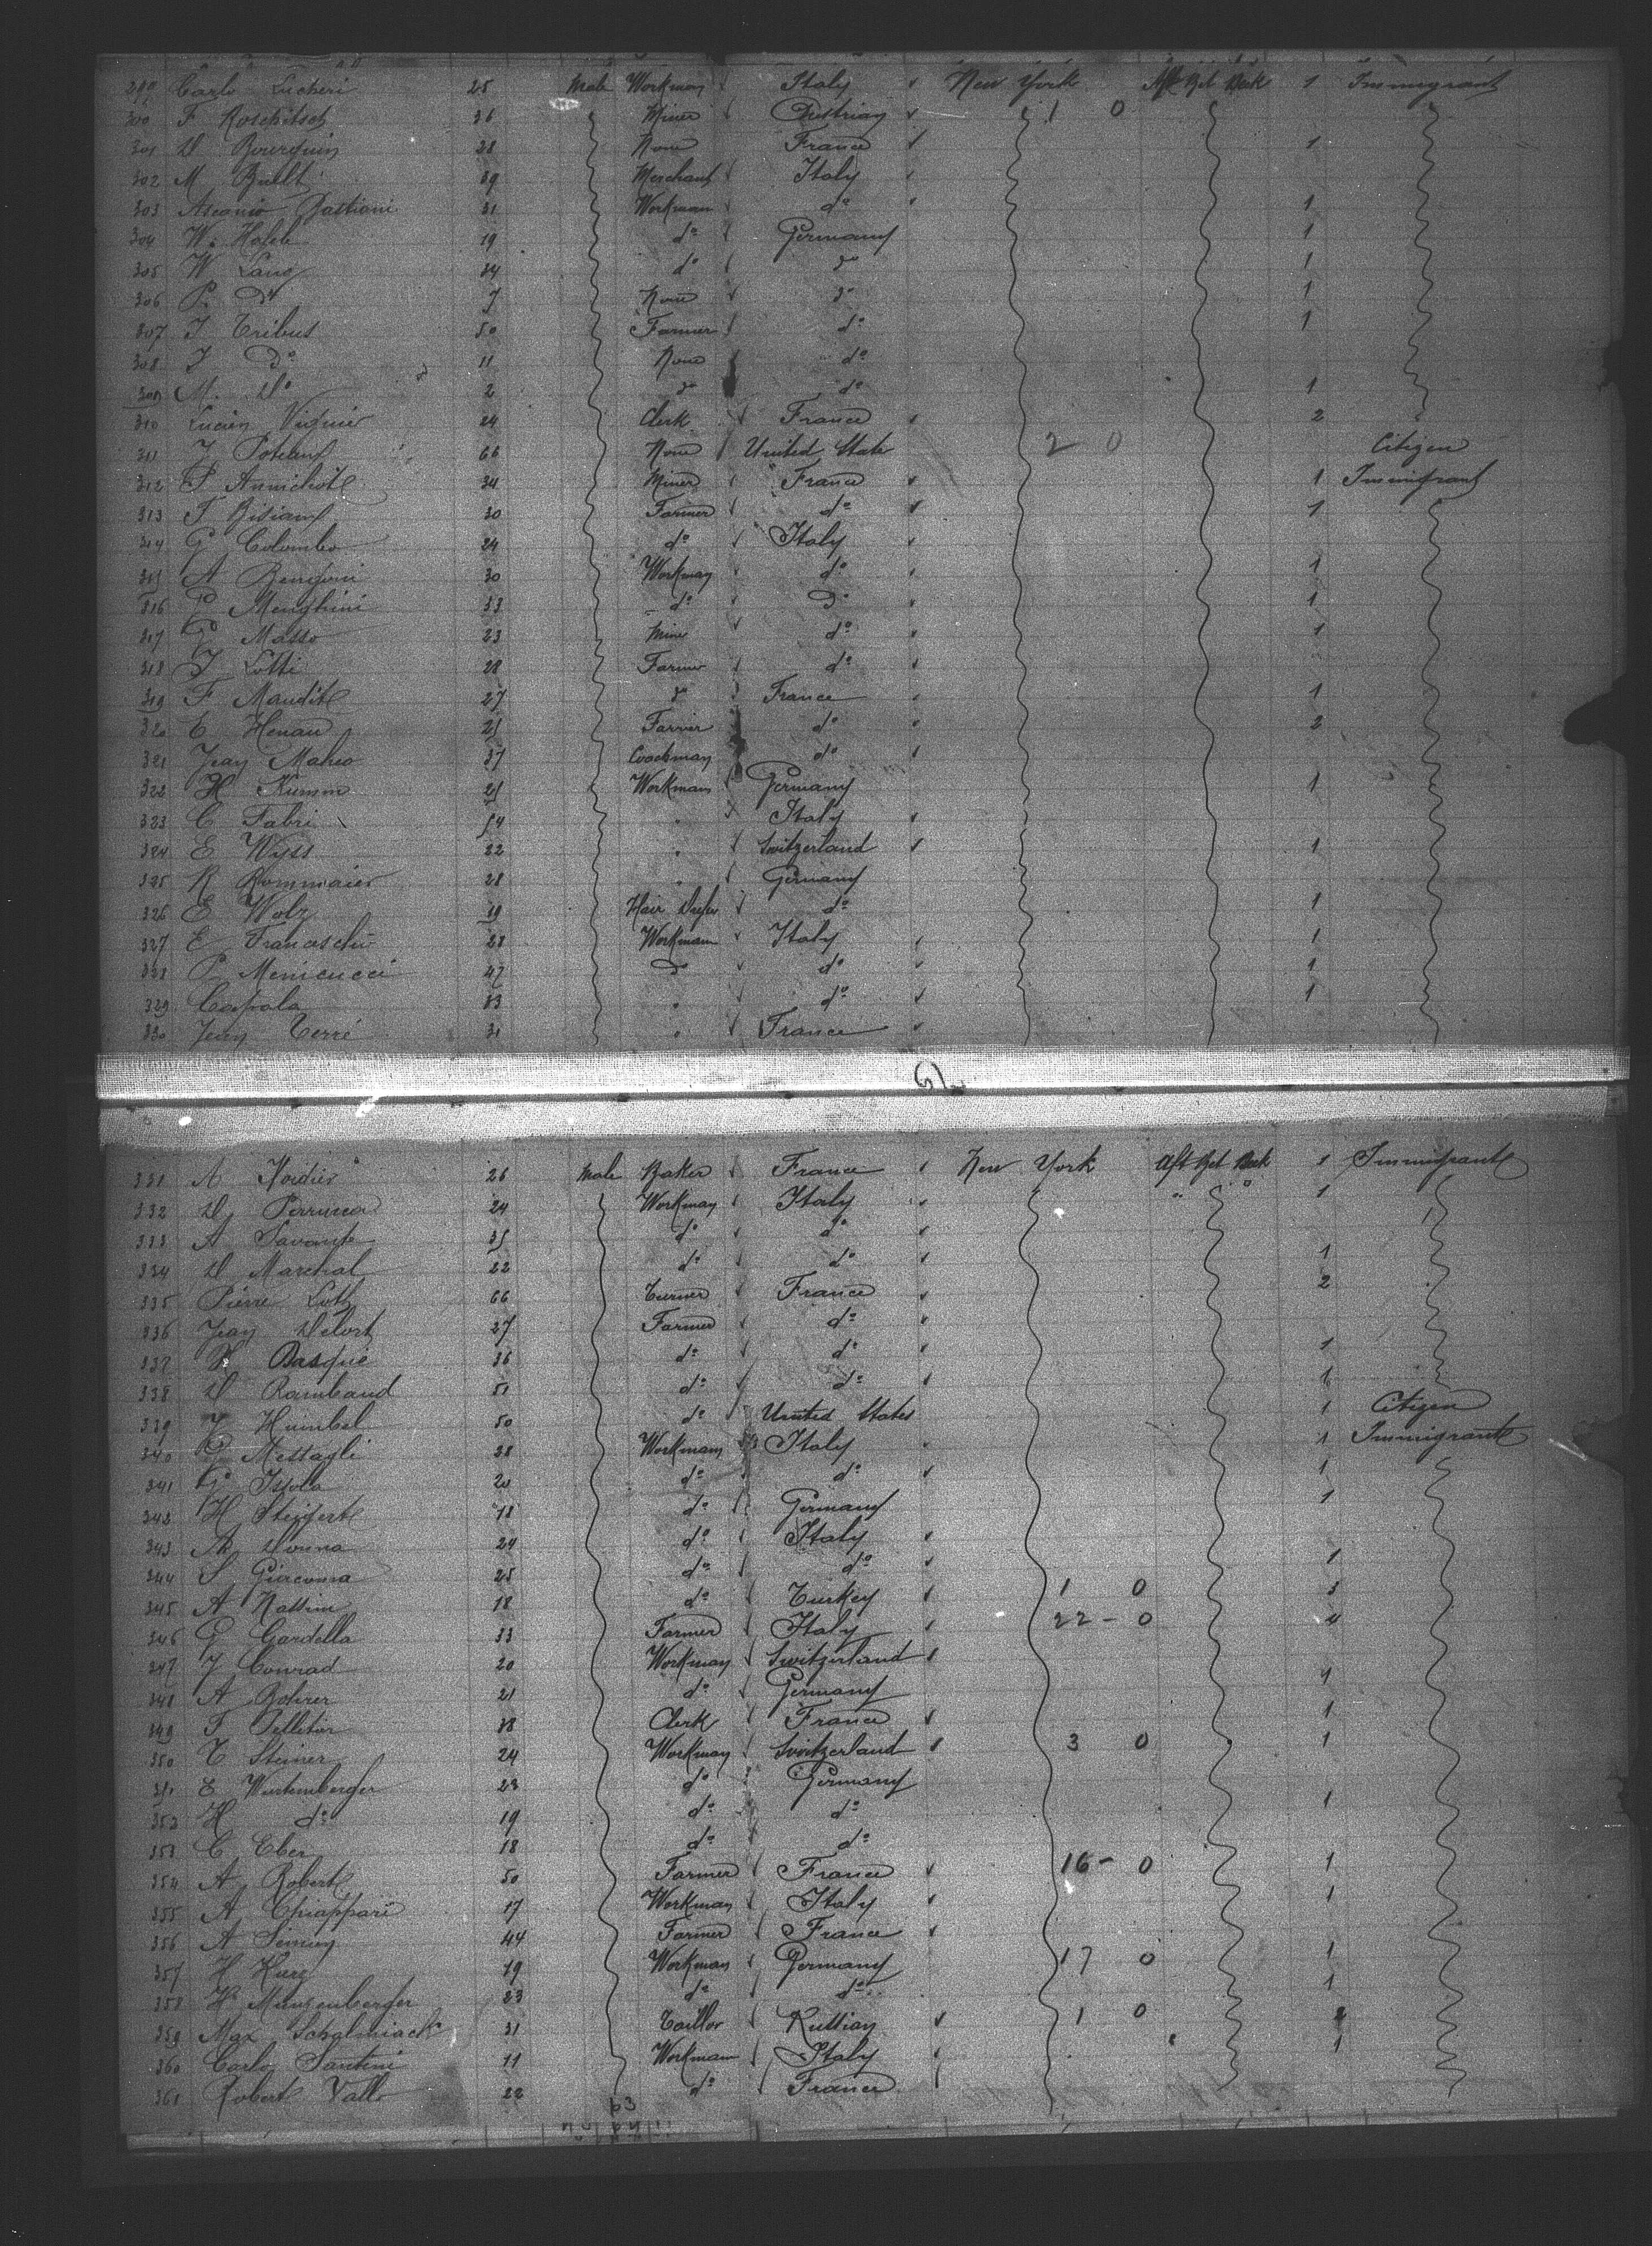 299 Carlo Lucheri 25 Male Workman Italy New York Aft Bet Deck 1 Immigrant
300 F 36 Miner Austrian 1 0
301 D Bourquin 28 None France 1
302 M 39 Merchant Italy
303 Ascanio Bastiani 31 Workman do 1
304 W. 19 do Germany 1
305 W Lang 34 do do 1
306 P. do 7 None do 1
307 J Tribus 50 Farmer do 1
308 J do 11 None do
309 M. do 2 do do 1
310 Lucien Viguier 24 Clerk France 2
311 J 66 None United State 2 0 Citizen
312 P 34 Miner France 1 Immigrant
313 F 30 Farmer do 1
314 G Colombo 24 do Italy
315 A 30 Workman do 1
316 P Menghini 33 do do 1
317 G Masso 23 Miner do 1
318 J Lotti 28 Farmer do
319 F 27 do France 1
320 E Henau 25 Farrier do 2
321 Jean Maheo 37 Coachman do
322 H Kumm 21 Workman Germany 1
323 C Fabri 54 " Italy
324 E Wyss 22 " Switzerland 1
325 R Rommaier 28 " Germany
326 E Wolz 19 Hair do 1
327 E 28 Workman Italy 1
328 P Menicucci 47 do do 1
329 Capola 33 " do 1
330 Jean Terré 31 " France
331 A 26 Male Baker France New York Aft Bet Deck 1 Immigrant
332 D Perrucca 24 Workman Italy " " 1
333 A 35 do do
334 D Marchal 22 do do 1
335 Pierre 66 Turner France 2
336 Jean Delort 27 Farmer do
337 Basquie 36 do do 1
338 D Rambaud 51 do do 1
339 J Humbel 50 do United States 1 Citizen
340 G Messagli 38 Workman Italy 1 Immigrant
341 G Isola 20 do do 1
342 H 18 do Germany 1
343 Donna 24 do Italy
344 S Giacoma 25 do do 1
345 A Nassim 18 do Turkey 1 0 3
346 G Gardella 33 Farmer Italy 22 - 0 4
347 J Conrad 20 Workman Switzerland
348 A Rohrer 21 do Germany 4
349 F Pelletier 38 Clerk France 1
350 T Steiner 24 Workman Switzerland 3 0 1
351 E Wurtemberger 23 do Germany
352 H do 19 do do 1
353 C Eber 18 do do
354 A Robert 50 Farmer France 16 - 0 1
355 A Chiappari 17 Workman Italy 1
356 A 44 Farmer France
357 H 19 Workman Germany 17 0 1
358 H 23 do do 1
359 Max Schalmiack 31 Taillor Russian 1 0 2
360 Carlo Santini 11 Workman Italy 1
361 Robert Valls 22 do France
63